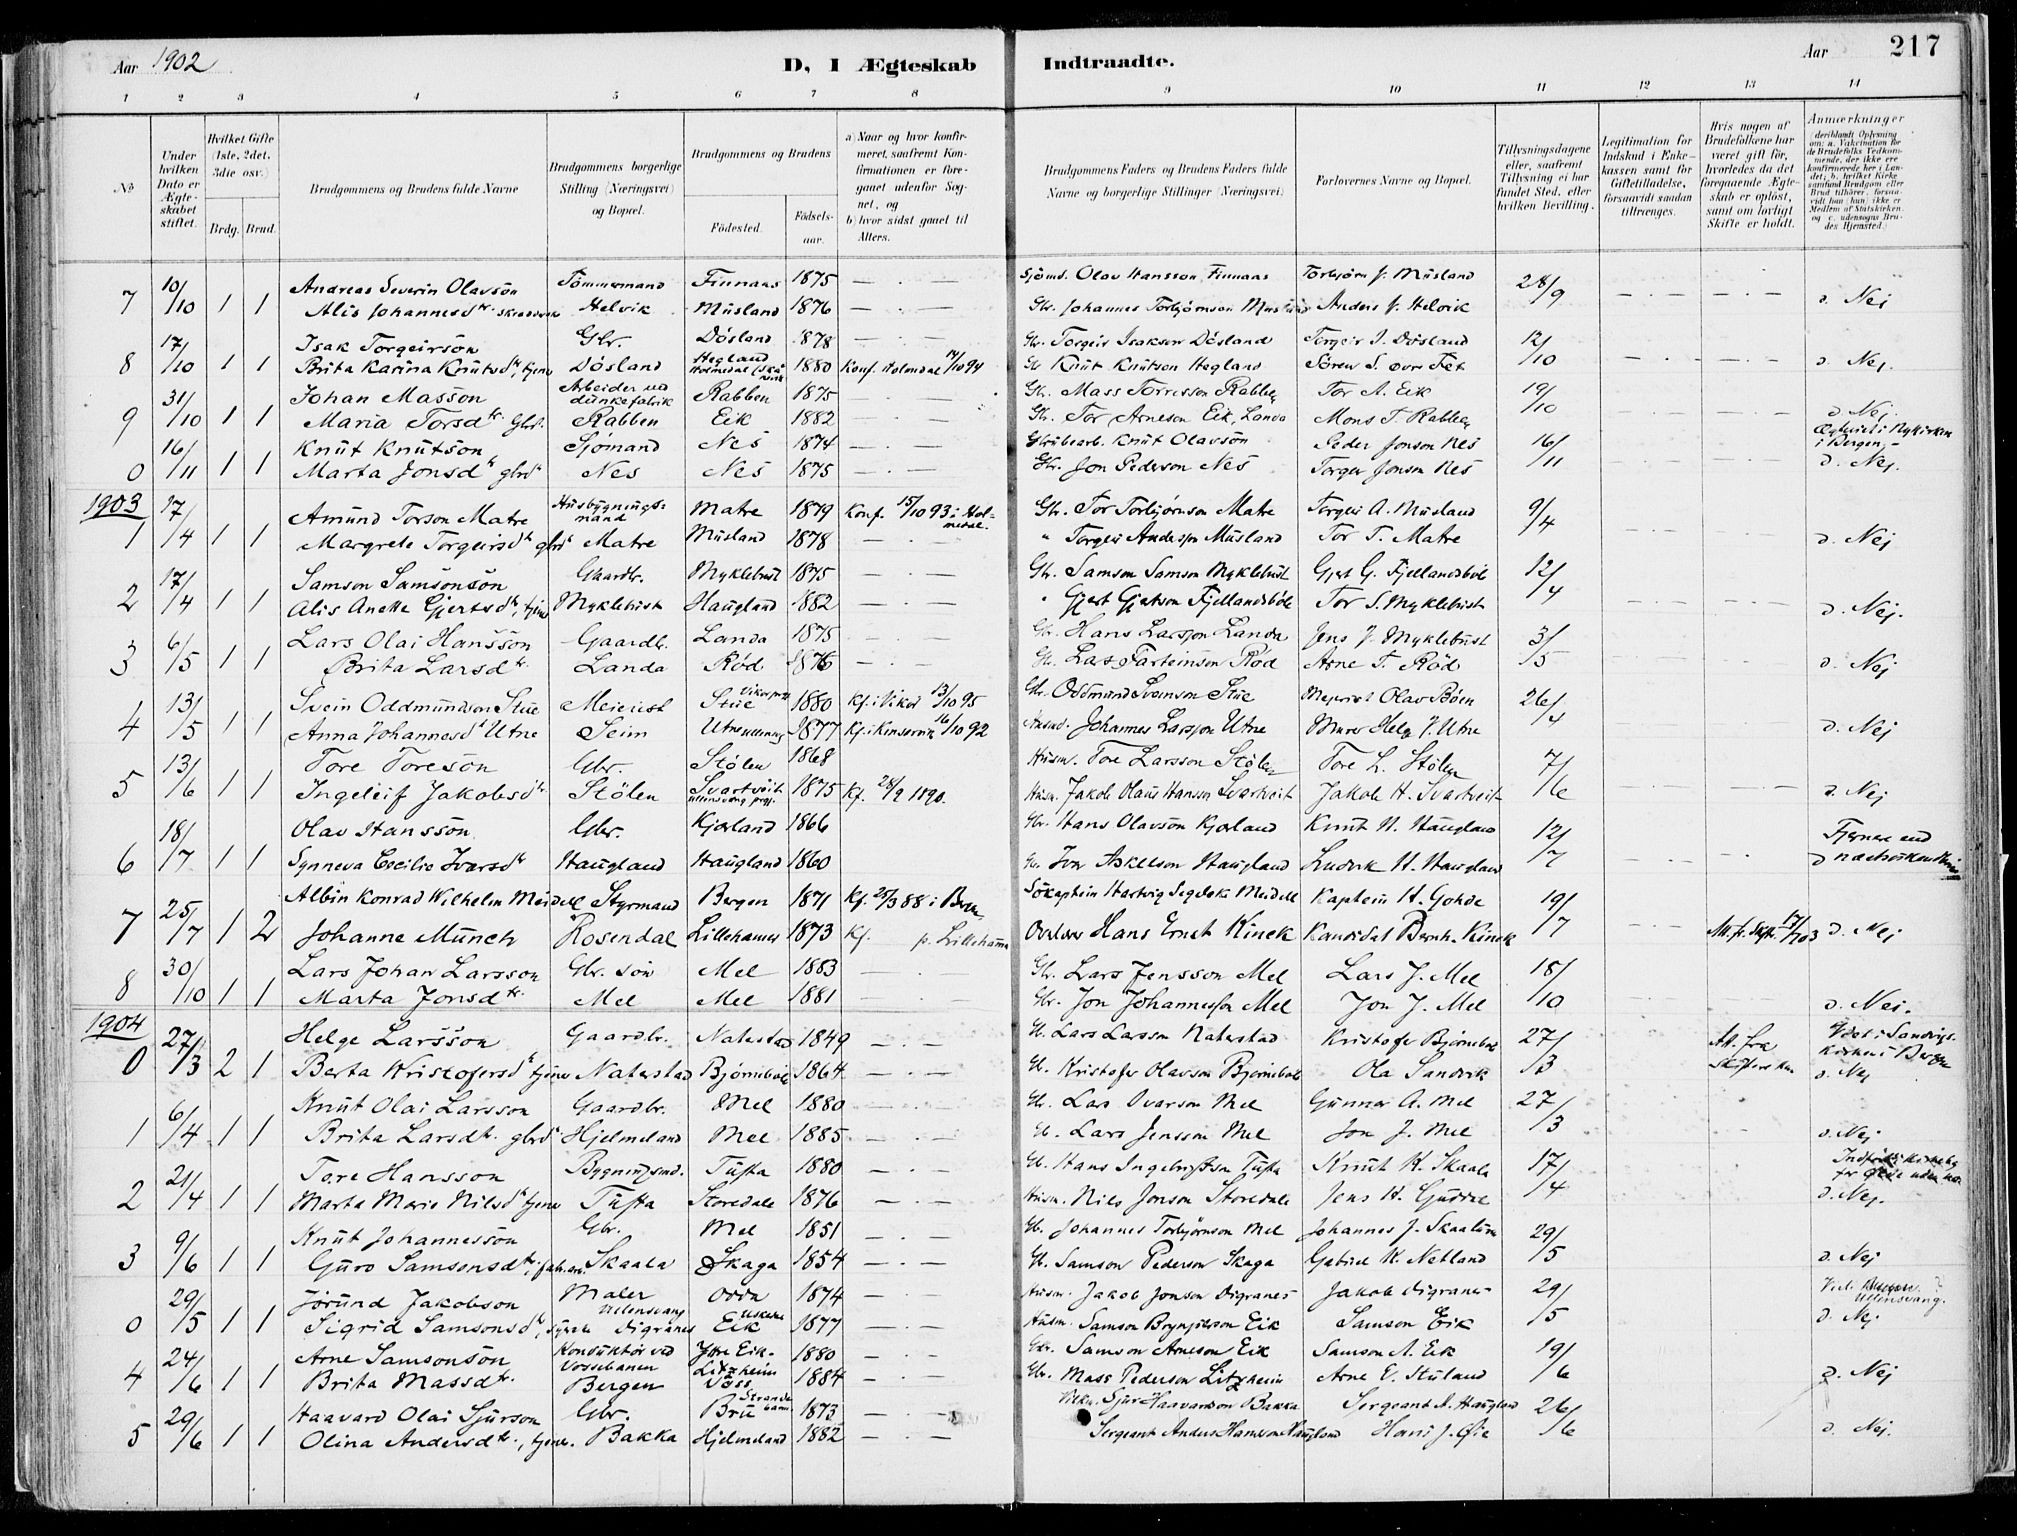 Aar 1902
D, I Ægteskab Indtraadte.
Aar 217
1 2 3 4 5 6 7 8 9 10 11 12 13 14
No
Under hvilken Dato er Ægteskabet stiftet.
Hvilket Gifte (1ste, 2det, 3die osv.)
Brdg. Brud.
Brudgommens og Brudens fulde Navne
Brudgommens borgerlige Stilling (Næringsvei) og Bopæl.
Brudgommens og Brudens
Födested. Födselsaar.
a) Naar og hvor konfirmeret, saafremt Konfirmationen er foregaaet udenfor Sognet, og
b) hvor sidst gaaet til Alters.
Brudgommens Faders og Brudens Faders fulde Navne og borgerlige Stillinger (Næringsvei)
Forlovernes Navne og Bopæl.
Tillysningsdagene eller, saafremt Tillysning ei har fundet Sted, efter hvilken Bevilling.
Legitimation for Indskud i Enkekassen samt for Giftetilladelse, forsaavidt saadan tiltrænges.
Hvis nogen af Brudefolkene har været gift før, hvorledes da det foregaaende Ægteskab er opløst, samt om lovligt Skifte er holdt.
Anmærkninger
7 10/10 1 1 Andreas Severin Olavsön Tømmermand Finnaas 1875 Sjömd. Olav Hansson Finnaas Torbjörn J. Musland 28/9
Alis Johannesdtr. Helvik Musland 1876 Gbr. Johannes Torbjörnson Musland Anders J. Helvik d. Nej
8 17/10 1 1 Isak Torgeirsön Gbr. Dösland 1878 Gbr. Torgeir Isakson Dösland Torgeir I. Dösland 12/10
Brita Karina Knutsdtr, tjener Dösland Hegland 1880 Konf. Holmedal /10 94 Knut Knutson Hegland Sören S. övr Fet d. Nej.
9 31/10 1 1 Johan Masson Arbeider ved dunkefabrik Rabben 1875 Gbr. Mass Torresson Rabben Tor A. Eik 19/10
Maria Torsdtr. Gbrd. Rabben Eik 1882 Gbr. Tor Arneson Eik, Landa Mons T. Rabben d. Nej.
0 16/11 1 1 Knut Knutsön Sjömand Nes 1874 Knut Olavsön Peder Jonson Nes 16/11 i Nykirken i Bergen,
Marta Jonsdtr gbrd Nes Nes 1875 Gbr. Jon Pederson Nes Torger Jonson Nes d. Nej.
1903
1 17/4 1 1 Amund Torson Matre Husbygningsmand Matre 1879 Konf. 15/10 93 i Holmedal. Gbr. Tor Torbjörnson Matre Torgeir A. Musland 9/4
Margrete Torgeirsdtr gbrd Matre Musland 1878 " Torgeir Anderson Musland Tor T. Matre d. Nej
2 17/4 1 1 Samson Samsonsön Gaardbr. Myklebust 1875 Gbr. Samson Samson Myklebust Gjert G. Fjellandsböe 12/4
Alis Anette Gjertsdtr, tjener Myklebust Haugland 1882 " Gjert Gjertson Fjellandsböe Tor S. Myklebust d. Nej.
3 6/5 1 1 Lars Olai Hansson Gaardbr. Landa 1875 Gbr. Hans Larsson Landa Jens J. Myklebust 3/5
Brita Larsdtr. Landa Röd 1876 Gbr. Lars Tarteinson Röd Arne T. Röd d. Nej
4 13/5 1 1 Svein Oddmundson Stue Meierist Stue 1880 Kf. i Vikör 13/10 95 Gbr. Oddmund Svenson Stue Meierist Olav Böen 26/4
Anna Johannesdtr Utne Seim Utne 1877 Kf. i Kinservik 16/10 92 Johannes Larsson Utne Murer Helge J. Utne d. Nej
5 13/6 1 1 Tore Toresön Gbr. Stölen 1868 Husm. Tore Larsson Stölen Tore L. Stölen 7/6
Ingeleif Jakobsdtr. Stölen Svartveit Ullensvang prgj. 1875 Kf. 28/9 1890. Husm. Jakob Olaus Hansson Svartveit Jakob H. Svartveit d. Nej
6 18/7 1 1 Olav Hanssön Gbr. Kjærland 1866 Gbr. Hans Olavsön Kjærland Knut N. Haugland 12/7 Fjernere end
Synneva Cecilie Ivarsdtr Haugland Haugland 1860 Gbr. Ivar Askelson Haugland Ludvik H. Haugland
7 25/7 1 2 Albin Konrad Wilhelm Meidell Styrmand Bergen 1871 Kf. 25/3 88 i Bergen Kaptein H. Gohde 19/7
Johanne Munch Rosendal Lillehamer 1873 Kf. p. Lillehamer Hans Ernst Kinck Kandidat Bernh. Kinck d. Nej
8 30/10 1 1 Lars Johan Larsson Gbr. sön Mel 1883 Gbr. Lars Jensson Mel Lars J. Mel 18/10
Marta Jonsdtr. Mel Mel 1881 Gbr. Jon Johannesson Mel Jon J. Mel d. Nei.
1904
0 27/3 2 1 Helge Larsson Gaardbr. Naterstad 1849 Gb. Lars Larsson Naterstad Kristofer Björneböl 27/3 Att. fra Viet i Sandvigskirken i Bergen
Berta Kristofersdtr tjener Naterstad Björneböl 1864 Gb. Kristofer Olavson Björneböl Ola Sandvik d. Nej
1 6/4 1 1 Knut Olai Larsson Gaardbr. Mel 1880 Gbr. Lars Ivarson Mel Gunnar A. Mel 27/3
Brita Larsdtr. gbrd Hjelmeland Mel 1885 Gb. Lars Jensson Mel Jon J. Mel d. Nej
2 21/4 1 1 Tore Hansson Bygningsmd. Tufta 1880 Gb. Hans Ingebrigtson Tufta Knut K. Skaala 17/4
Marta Marie Nilsdtr tjener Tufta Storedale 1876 Husm. Nils Jonson Storedale Jens H. Guddal d. Nej.
3 9/6 1 1 Knut Johannessön Gbr. Mel 1851 Gb. Johannes Torbjörnson Mel Johannes J. Skaalum 29/5
Guro Samsonsdtr. Skaala Skaga 1854 Gb. Samson Pederson Skaga Gabriel K. Netland d. Nej
0 29/5 1 1 Jörund Jakobson Maler Odda 1874 Husm. Jakob Jonson Digranes Jakob Digranes 29/5 Ullensvang.
Sigrid Samsonsdtr, Ullensvang Digranes Eik 1877 Husm. Samson Brynjelson Eik Samson Eik d. Nej
4 24/6 1 1 Arne Samsonsön Konduktör ved Vossebanen Ytre Eik 1880 Gbr. Samson Arneson Eik Samson A. Eik 19/6
Brita Massdtr. Bergen Litzheim Voss 1884 Gbr. Mass Pederson Litzheim Arne E. Stuland d. Nej
5 29/6 1 1 Haavard Olai Sjurson Gbr. Bru Strandebarm 1873 Sjur Haavardson Bakka Sergeant A. Haugland 26/6
Olina Andersdtr., tjener. Bakka Hjelmeland 1882 Sergeant Anders Hansson Haugland Hans J. Öie d. Nej.